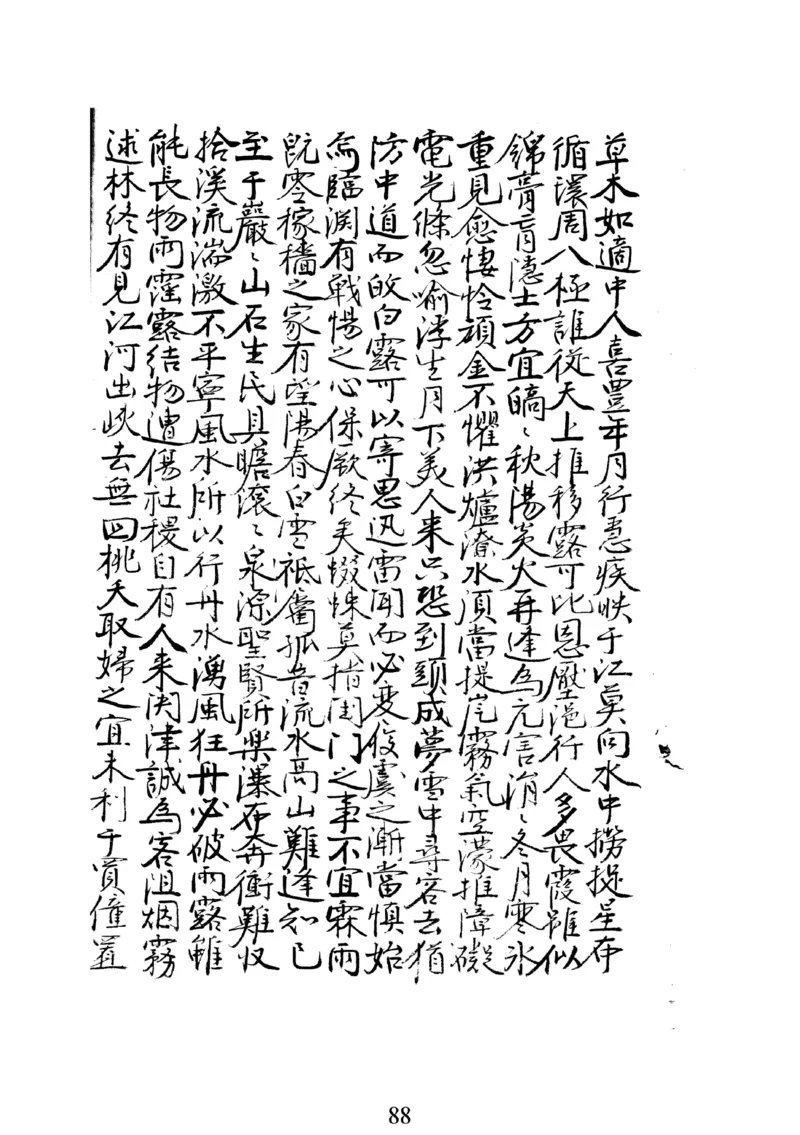 草木如適中人喜豊年月行急疾映于江莫向水中撈捉星布
循環周八極誰從天上推移露可比恩壓浥行人多畏霞雖似
錦膏肓隱士方宜皜〻秋陽炎火再逢為亢害涓〻冬月寒氷
重見愈悽怜頑金不懼洪爐潦水須當提岸霧氣空濛推障礙
電光倏忽喻浮生月下美人来只恐到頭成夢雪中尋客去猶
防中道而皎白露可以寄思迅雷聞而必变履虞之漸當慎始
焉臨渕有戰惕之心保厥終矣蝃蝀莫指閨门之事不宜霖雨
既零稼穡之家有望陽春白雪祗當孤音流水高山難逢知已
至于巖〻山石生民具瞻滚〻泉源聖賢所樂瀑布奔衝難収
拾溪流湍激不平寧風水所以行丹水湧風狂丹必破雨露雖
能長物雨霪露結物遭傷社稷自有人来関津誠為客阻烟霧
逑林终有見江河出峡去無回桃夭取婦之宜未利于賈僮置
88